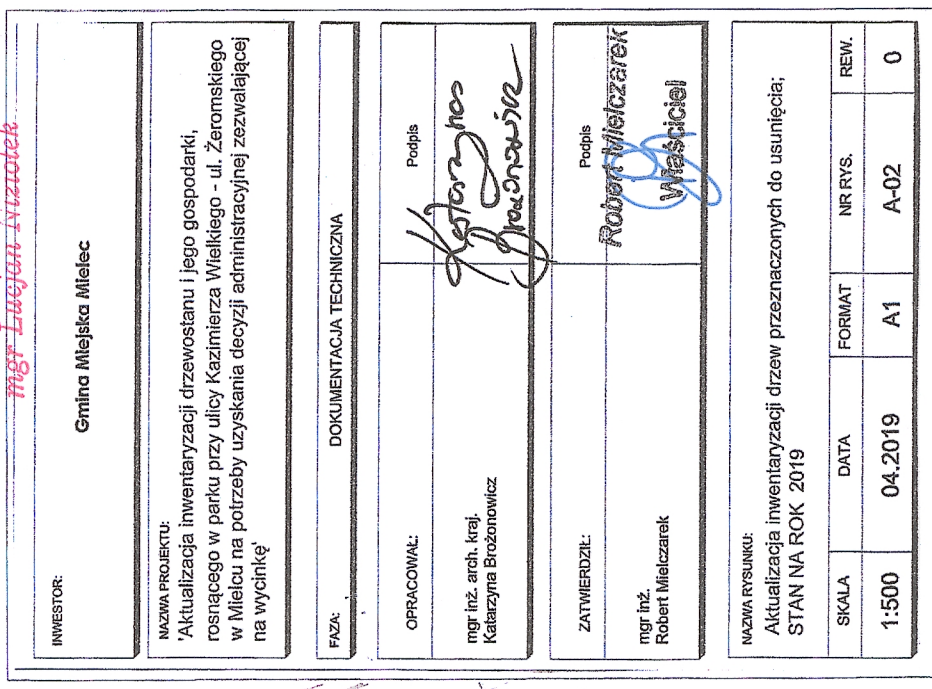 mgr Lucjan Niziołek
INWESTOR:
Gmina Miejska Mielec
NAZWA PROJEKTU:
'Aktualizacja inwentaryzacji drzewostanu i jego gospodarki,
rosnącego w parku przy ulicy Kazimierza Wielkiego - ul. Żeromskiego
w Mielcu na potrzeby uzyskania decyzji administracyjnej zezwalającej
na wycinkę'
FAZA:
DOKUMENTACJA TECHNICZNA
OPRACOWAŁ:
Podpis
mgr inż. arch. kraj.
Katarzyna Brożonowicz
Katarzyna
Brożonowicz
ZATWIERDZIŁ:
Podpis
mgr inż.
Robert Mielczarek
Robert Mielczarek
Właściciel
NAZWA RYSUNKU:
Aktualizacja inwentaryzacji drzew przeznaczonych do usunięcia;
STAN NA ROK 2019
SKALA DATA FORMAT NR RYS. REW.
1:500 04.2019 A1 A-02 0